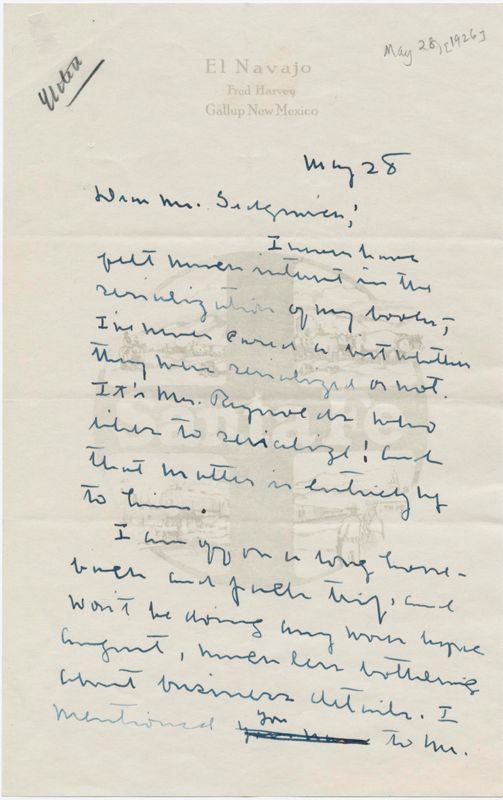 May 28, [1926]
El Navajo
Fred Harvey
Gallup New Mexico
May 28
Dear Mr. Sedgwick;
I never have
felt much interest in the
serialization of my books;
I've never cared a bit whether
they were serialized or not.
It's Mr. Reynolds who
likes to serialize! and
that matter is entirely up
to him.
I am off on a long horse-
back and pack trip, and
won't be doing any work before
August, much less bothering
about business details. I
mentioned you to Mr.